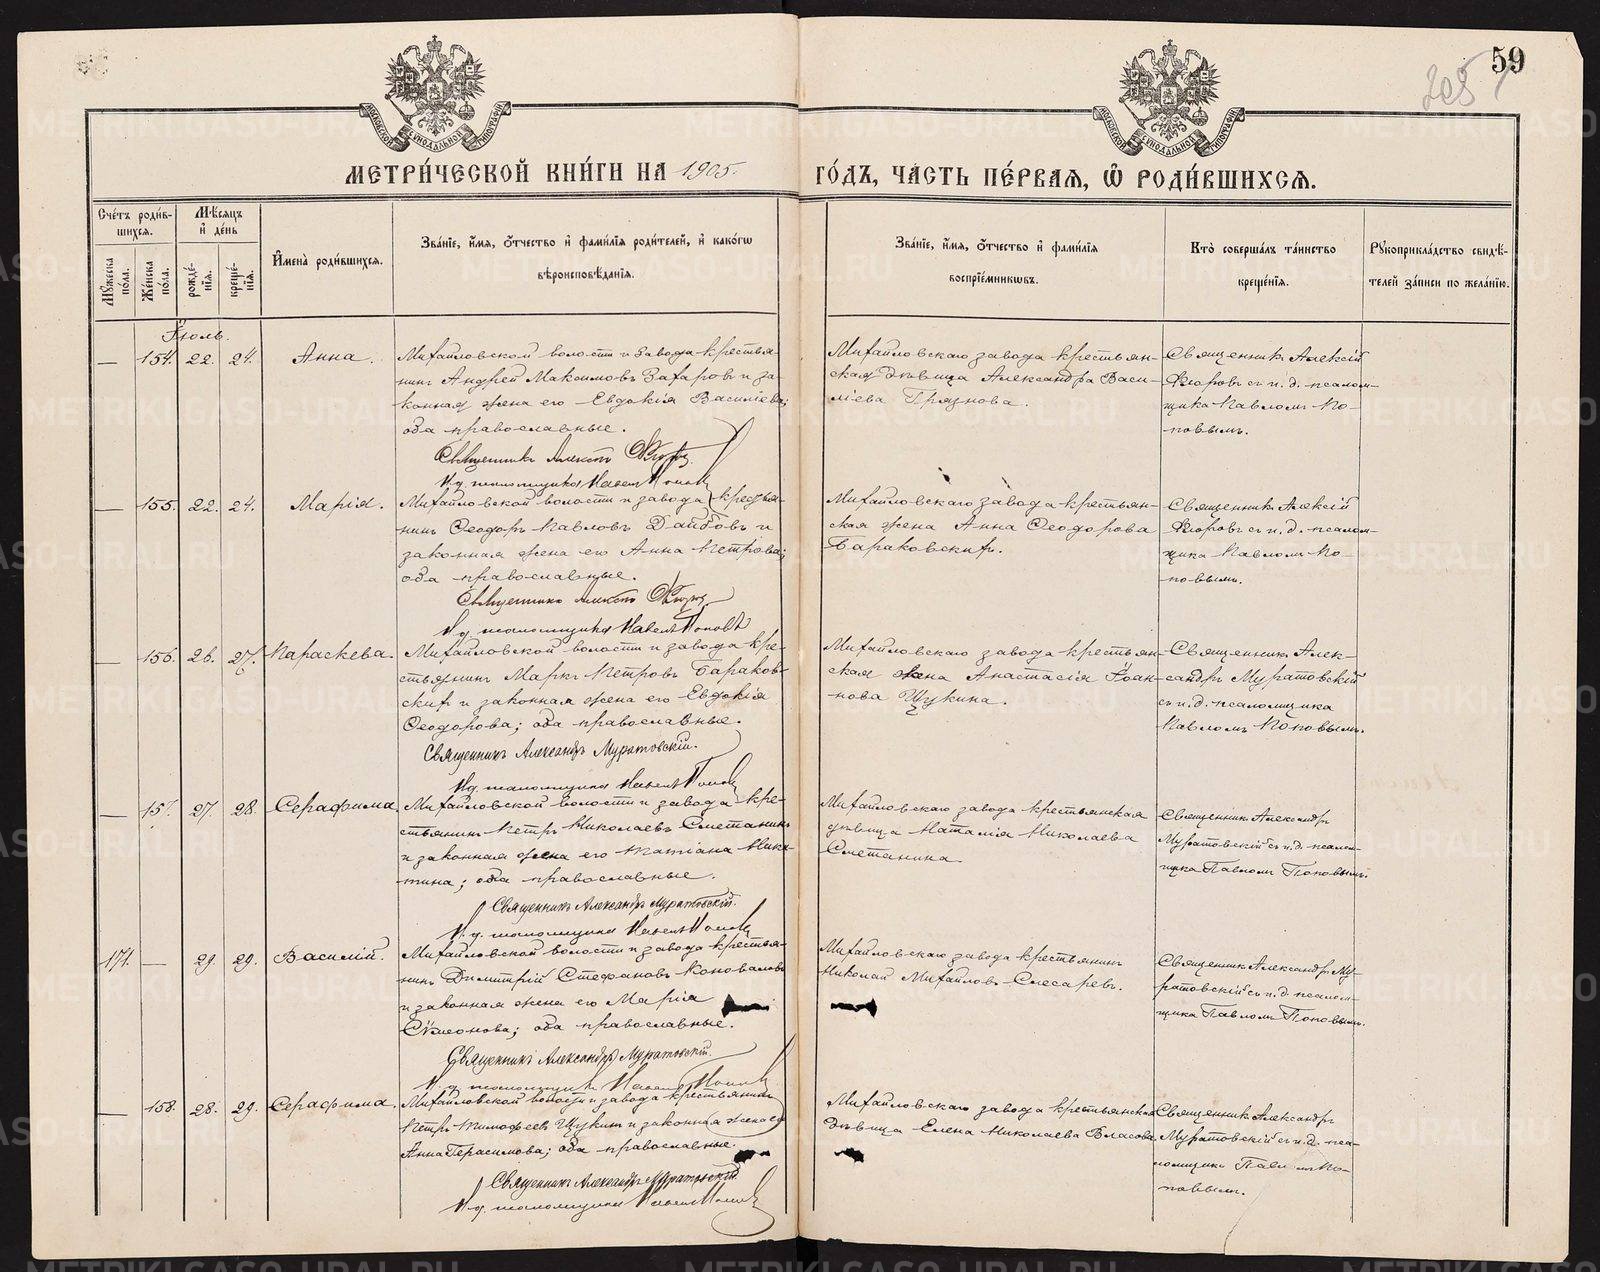 59
305
МОСКОВСКОЙ СѴНОДАЛЬНОЙ ТИПОГРАФІИ
МОСКОВСКОЙ СѴНОДАЛЬНОЙ ТИПОГРАФІИ
МЕТРИ́ЧЕСКОЙ КНИ́ГИ НА 1905. ГО́ДЪ, ЧА́СТЬ ПЕ́РВАѦ, Ѽ РОДИ́ВШИХСѦ.
Сче́тъ роди́в-
шихсѧ.
Мѣ́сѧцъ
и҆ де́нь
Мꙋ́жеска
по́ла.
Же́нска
по́ла.
рожде́-
нїѧ.
креще́-
нїѧ.
И҆мена̀ роди́вшихсѧ.
Зва́нїе, и҆́мѧ, ѻ҆́тчество и҆ фами́лїѧ роди́телей, и҆ како́гѡ
вѣроисповѣ́данїѧ.
Зва́нїе, и҆́мѧ, ѻ҆́тчество и҆ фами́лїѧ
воспрїе́мникѡвъ.
Кто̀ соверша́лъ та́инство
креще́нїѧ.
Рꙋкоприкла́дство свидѣ́-
телей за́писи по жела́нїю.
Іюль.
— 154. 22. 24. Анна.
Михайловской волости и завода крестья-
нинъ Андрей Максимовъ Захаровъ и за-
конная жена его Евдокія Василіева;
оба православные.
Священникъ Алексій Флоровъ.
И. д. псаломщика Павелъ Поповъ
Михайловскаго завода крестьян-
ская дѣвица Александра Васи-
ліева Грязнова.
Священникъ Алексій
Флоровъ съ и. д. псалом-
щика Павломъ По-
повымъ.
— 155. 22. 24. Марія.
Михайловской волости и завода крестья-
нинъ Ѳеодоръ Павловъ Даибовъ и
законная жена его Анна Петрова;
оба православные.
Священникъ Алексій Флоровъ.
И. д. псаломщика Павелъ Поповъ
Михайловскаго завода крестьян-
ская жена Анна Ѳеодорова
Бараковскихъ.
Священникъ Алексій
Флоровъ съ и. д. псалом-
щика Павломъ По-
повымъ.
— 156. 26. 27. Параскева.
Михайловской волости и завода кре-
стьянинъ Маркъ Петровъ Бараков-
скихъ и законная жена его Евдокія
Ѳеодорова; оба православные.
Священникъ Александръ Муратовскій.
И. д. псаломщика Павелъ Поповъ
Михайловскаго завода крестьян-
ская жена Анастасія Іоан-
нова Щукина.
Священникъ Алек-
сандръ Муратовскій
съ и. д. псаломщика
Павломъ Поповымъ.
— 157 27. 28. Серафима.
Михайловской волости и завода кре-
стьянинъ Петръ Николаевъ Сметанинъ
и законная жена его Татіана Ники-
тина; оба православные.
Священникъ Александръ Муратовскій.
И. д. псаломщика Павелъ Поповъ
Михайловскаго завода крестьянская
дѣвица Наталія Николаева
Сметанина
Священникъ Александръ
Муратовскій съ и. д. псалом-
щика Павломъ Поповымъ.
171. — 29. 29. Василій.
Михайловской волости и завода крестья-
нинъ Димитрій Стефановъ Коноваловъ
и законная жена его Марія
Симеонова; оба православные.
Священникъ Александръ Муратовскій.
И. д. псаломщика Павелъ Поповъ
Михайловскаго завода крестьянинъ
Николай Михайловъ Слесаревъ.
Священникъ Александръ Му-
ратовскій съ и. д. псалом-
щика Павломъ Поповымъ.
— 158. 28. 29. Серафима.
Михайловской волости и завода крестьянинъ
Петръ Тимофеевъ Щукинъ и законная жена его
Анна Герасимова; оба православные.
Священникъ Александръ Муратовскій
И. д. псаломщика Павелъ Поповъ
Михайловскаго завода крестьянская
дѣвица Елена Николаева Власова
Священникъ Александръ
Муратовскій съ и. д. пса-
ломщика Павломъ По-
повымъ.
METRIKI.GASO-URAL.RU